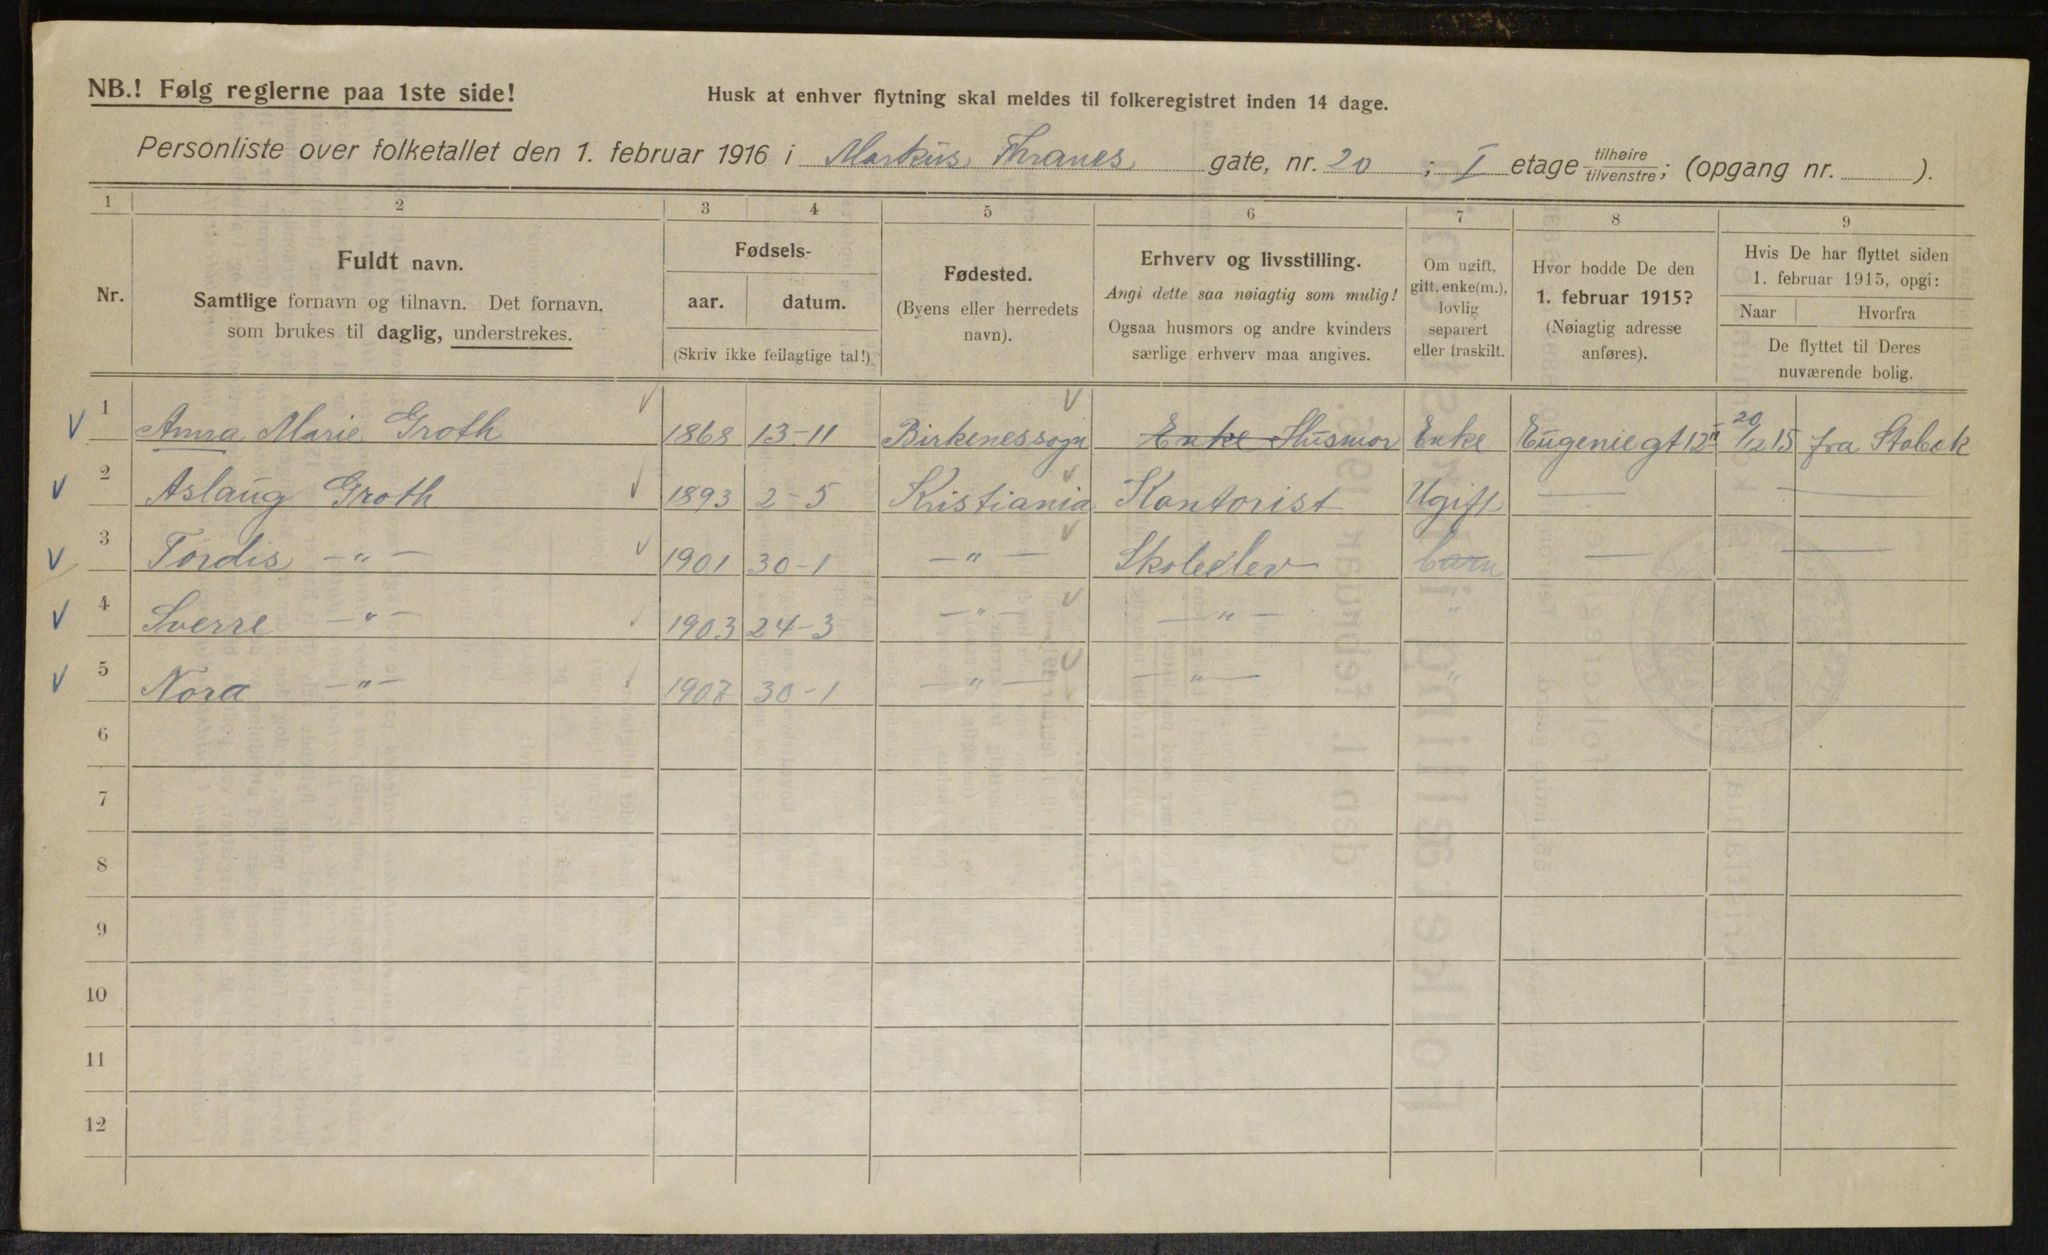 NB.! Følg reglerne paa 1ste side!
Husk at enhver flytning skal meldes til folkeregistret inden 14 dage.
Personliste over folketallet den 1. februar 1916 i Markus Thranes gate, nr. 20 ; I etage tilhøire tilvenstre; (opgang nr. ).
1 2 3 4 5 6 7 8 9
Nr.
Fuldt navn.
Samtlige fornavn og tilnavn. Det fornavn,
som brukes til daglig, understrekes.
Fødsels-
aar. datum.
(Skriv ikke feilagtige tal!)
Fødested.
(Byens eller herredets
navn).
Erhverv og livsstilling.
Angi dette saa nøiagtig som mulig!
Ogsaa husmors og andre kvinders
særlige erhverv maa angives.
Om ugift,
gift, enke(m.),
lovlig
separert
eller fraskilt.
Hvor bodde De den
1. februar 1915?
(Nøiagtig adresse
anføres).
Hvis De har flyttet siden
1. februar 1915, opgi:
Naar Hvorfra
De flyttet til Deres
nuværende bolig.
1 Anna Marie Groth 1868 13-11 Birkenessogn Enke Husmor Enke Eugeniegt 12 II 20/12 15 fra Stabek
2 Aslaug Groth 1893 2-5 Kristiania Kontorist Ugift — —
3 Tordis —"— 1901 30-1 —"— Skoleelev barn — —
4 Sverre —"— 1903 24-3 —"— —"— "
5 Nora —"— 1907 30-1 —"— —"— "
6
7
8
9
10
11
12